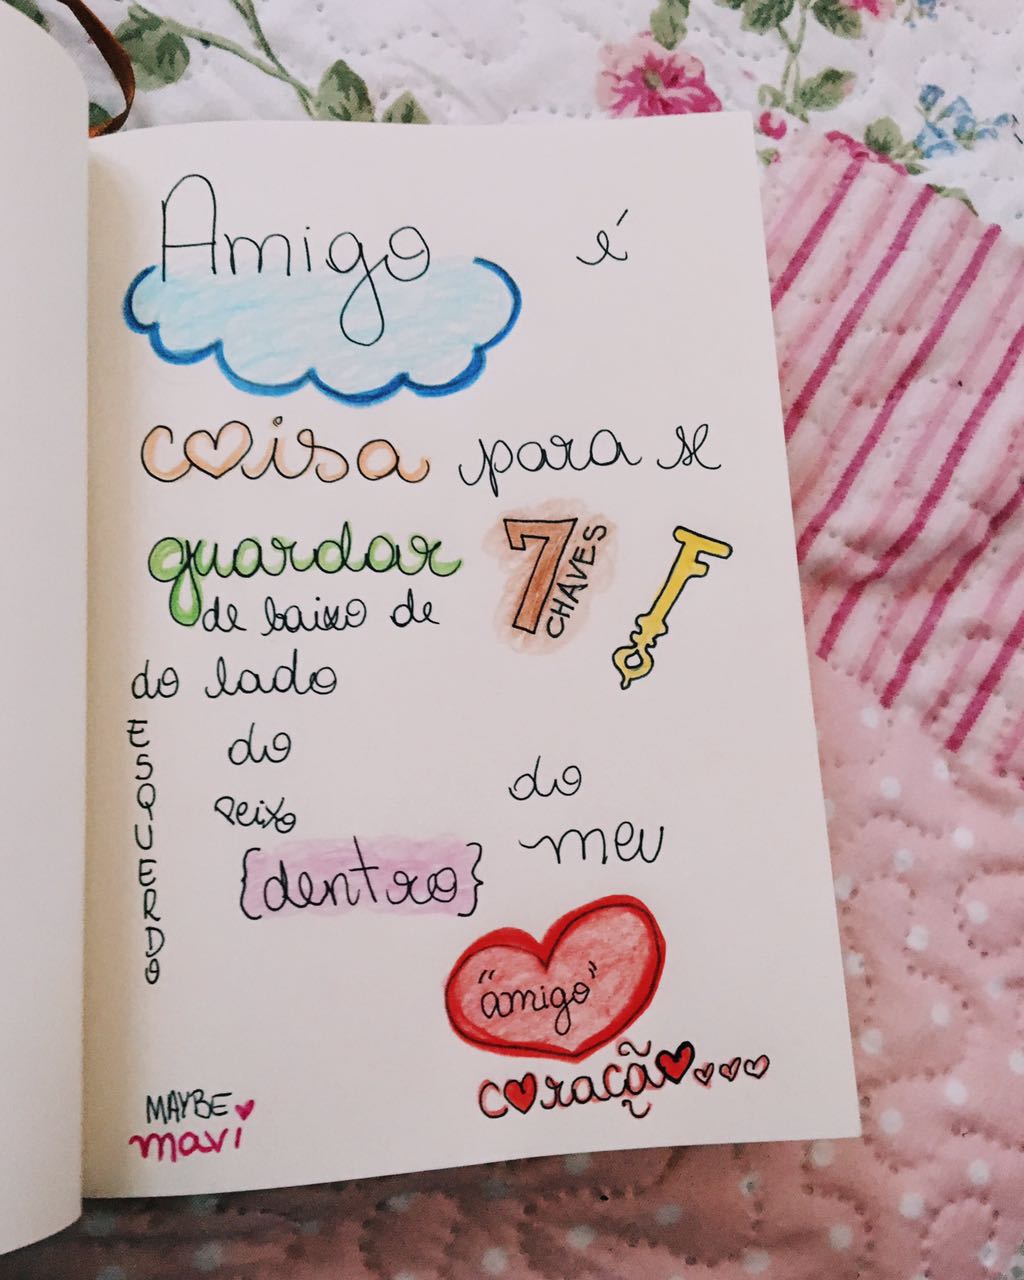 Amigo é
coisa para se
guardar
de baixo de
7 CHAVES
do lado
ESQUERDO
do
peixo
{dentro}
do
meu
"amigo"
coração...
MAYBE
mavi